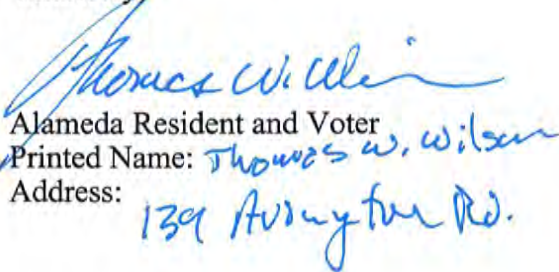 Thomas W. Wilson
Alameda Resident and Voter
Printed Name: Thomas W. Wilson
Address:
139 Avington Rd.